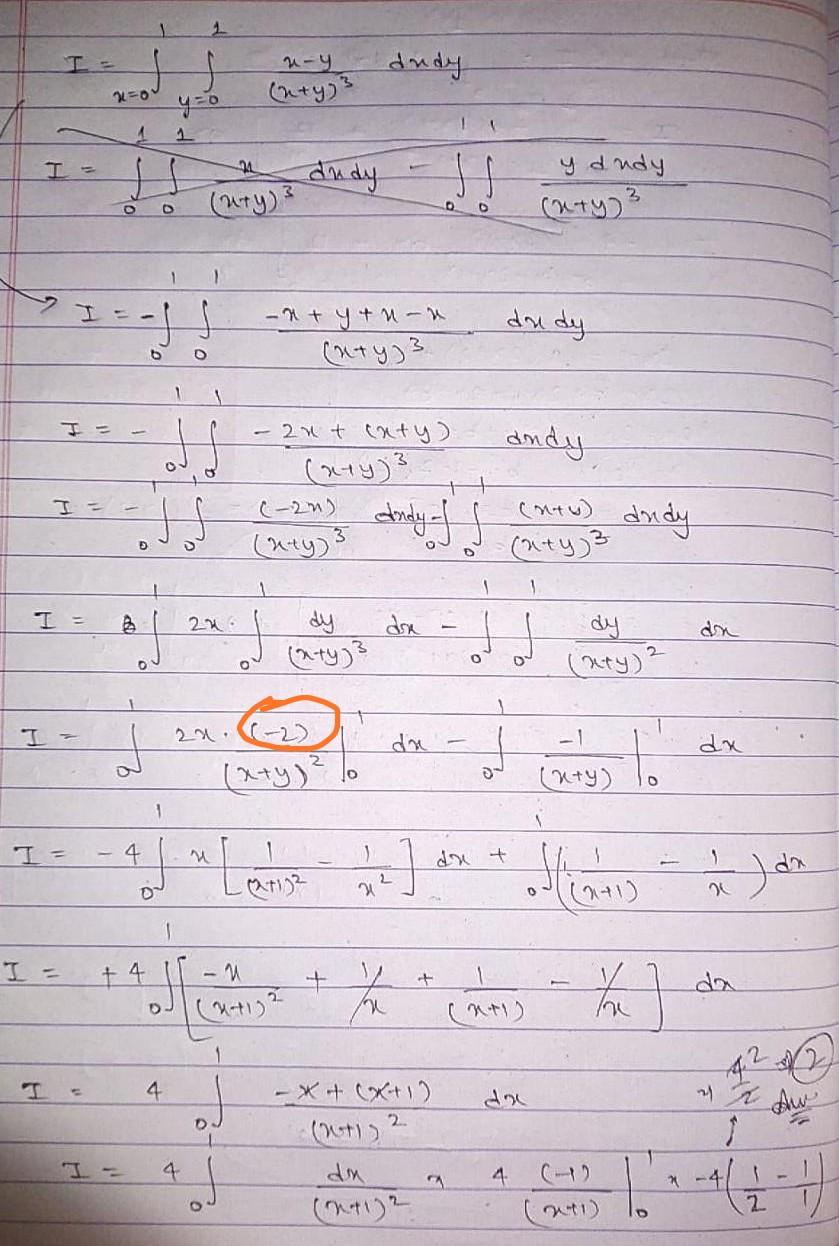 I = ∫_{x=0}^{1} ∫_{y=0}^{1} x-y/(x+y)^3 dxdy
I = ∫_0^1 ∫_0^1 x/(x+y)^3 dxdy - ∫_0^1 ∫_0^1 y dxdy/(x+y)^3
I = -∫_0^1 ∫_0^1 -x+y+x-x/(x+y)^3 dxdy
I = -∫_0^1 ∫_0^1 -2x+(x+y)/(x+y)^3 dxdy
I = -∫_0^1 ∫_0^1 (-2x)/(x+y)^3 dxdy - ∫_0^1 ∫_0^1 (x+y)/(x+y)^3 dxdy
I = ∫_0^1 2x· ∫_0^1 dy/(x+y)^3 dx - ∫_0^1 ∫_0^1 dy/(x+y)^2 dx
I = ∫_0^1 2x· (-2)/(x+y)^2 |_0^1 dx - ∫_0^1 -1/(x+y) |_0^1 dx
I = -4 ∫_0^1 x[1/(x+1)^2 - 1/x^2] dx + ∫_0^1 (1/(x+1) - 1/x) dx
I = +4 ∫_0^1 [-x/(x+1)^2 + 1/x + 1/(x+1) - 1/x] dx
I = 4 ∫_0^1 -x+(x+1)/(x+1)^2 dx
I = 4 ∫_0^1 dx/(x+1)^2 = 4 (-1)/(x+1) |_0^1 = -4(1/2 - 1/1)
= 4^2/2 ⇒ 2 Ans